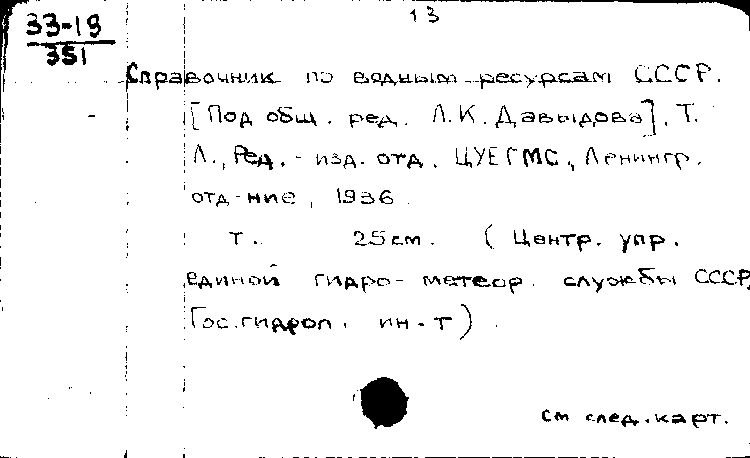 13
33-19
351
Справочник по водным ресурсам СССР.
[Под общ. ред. Л.К. Давыдова]. Т.
Л., Ред.-изд. отд. ЦУЕГМС, Ленингр.
отд-ние, 1936.
Т. 25см. (Центр. упр.
единой гидро-метеор. службы СССР,
Гос.гидрол. ин-т).
см след.карт.